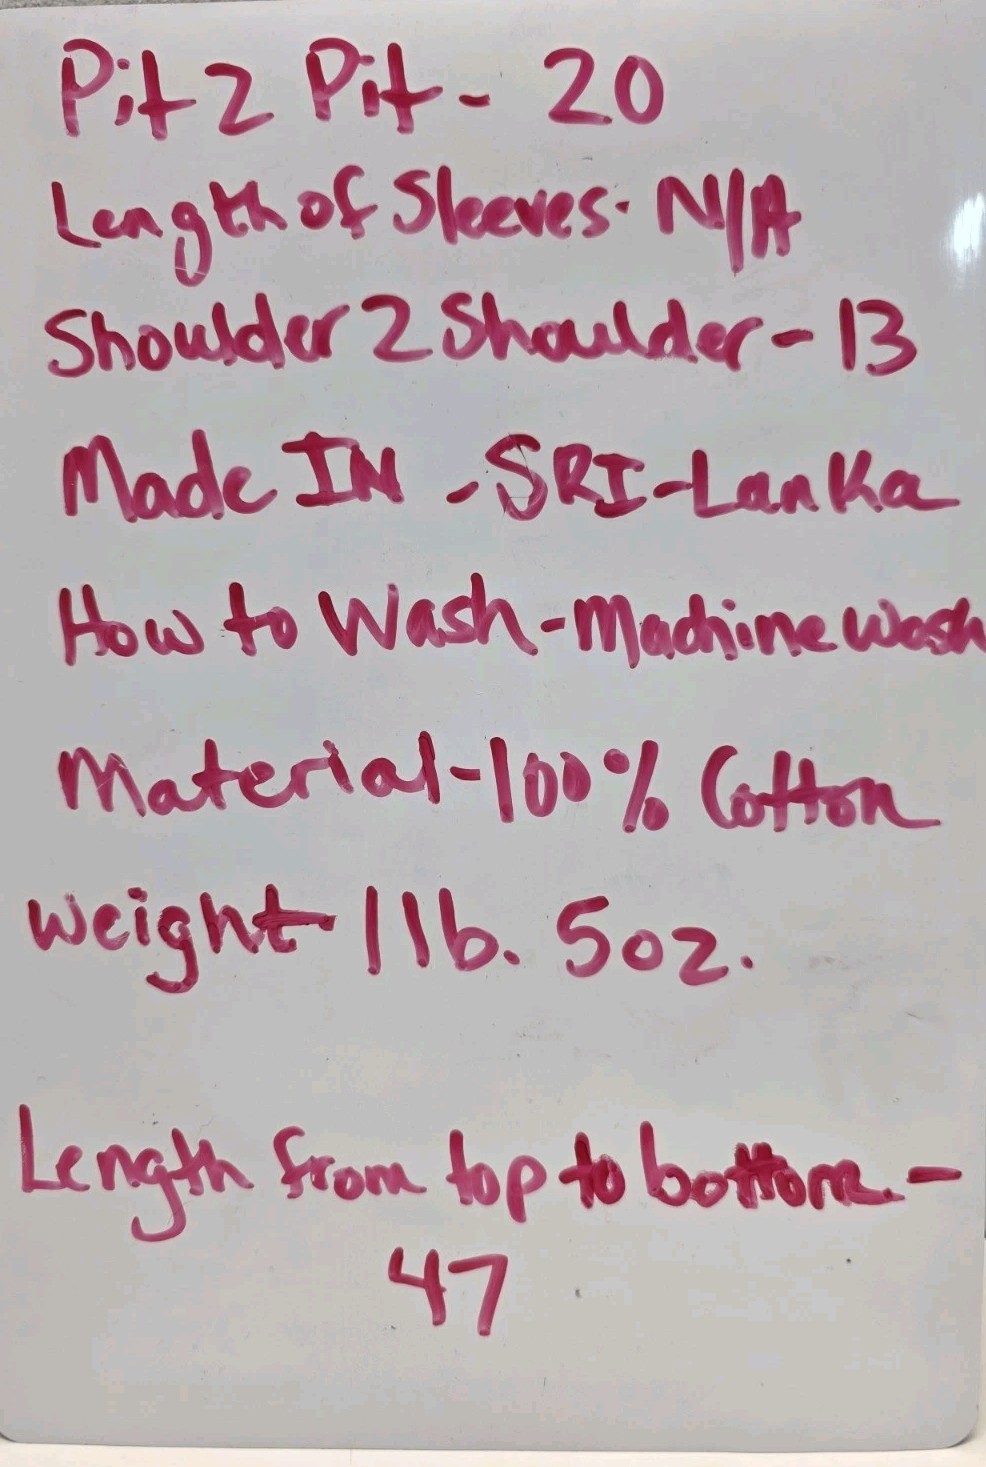 Pit 2 Pit - 20
Length of Sleeves - N/A
Shoulder 2 Shoulder - 13
Made IN - SRI-Lanka
How to Wash - Machine Wash
Material - 100% Cotton
Weight - 1 lb. 5oz.
Length from top to bottom. -
47